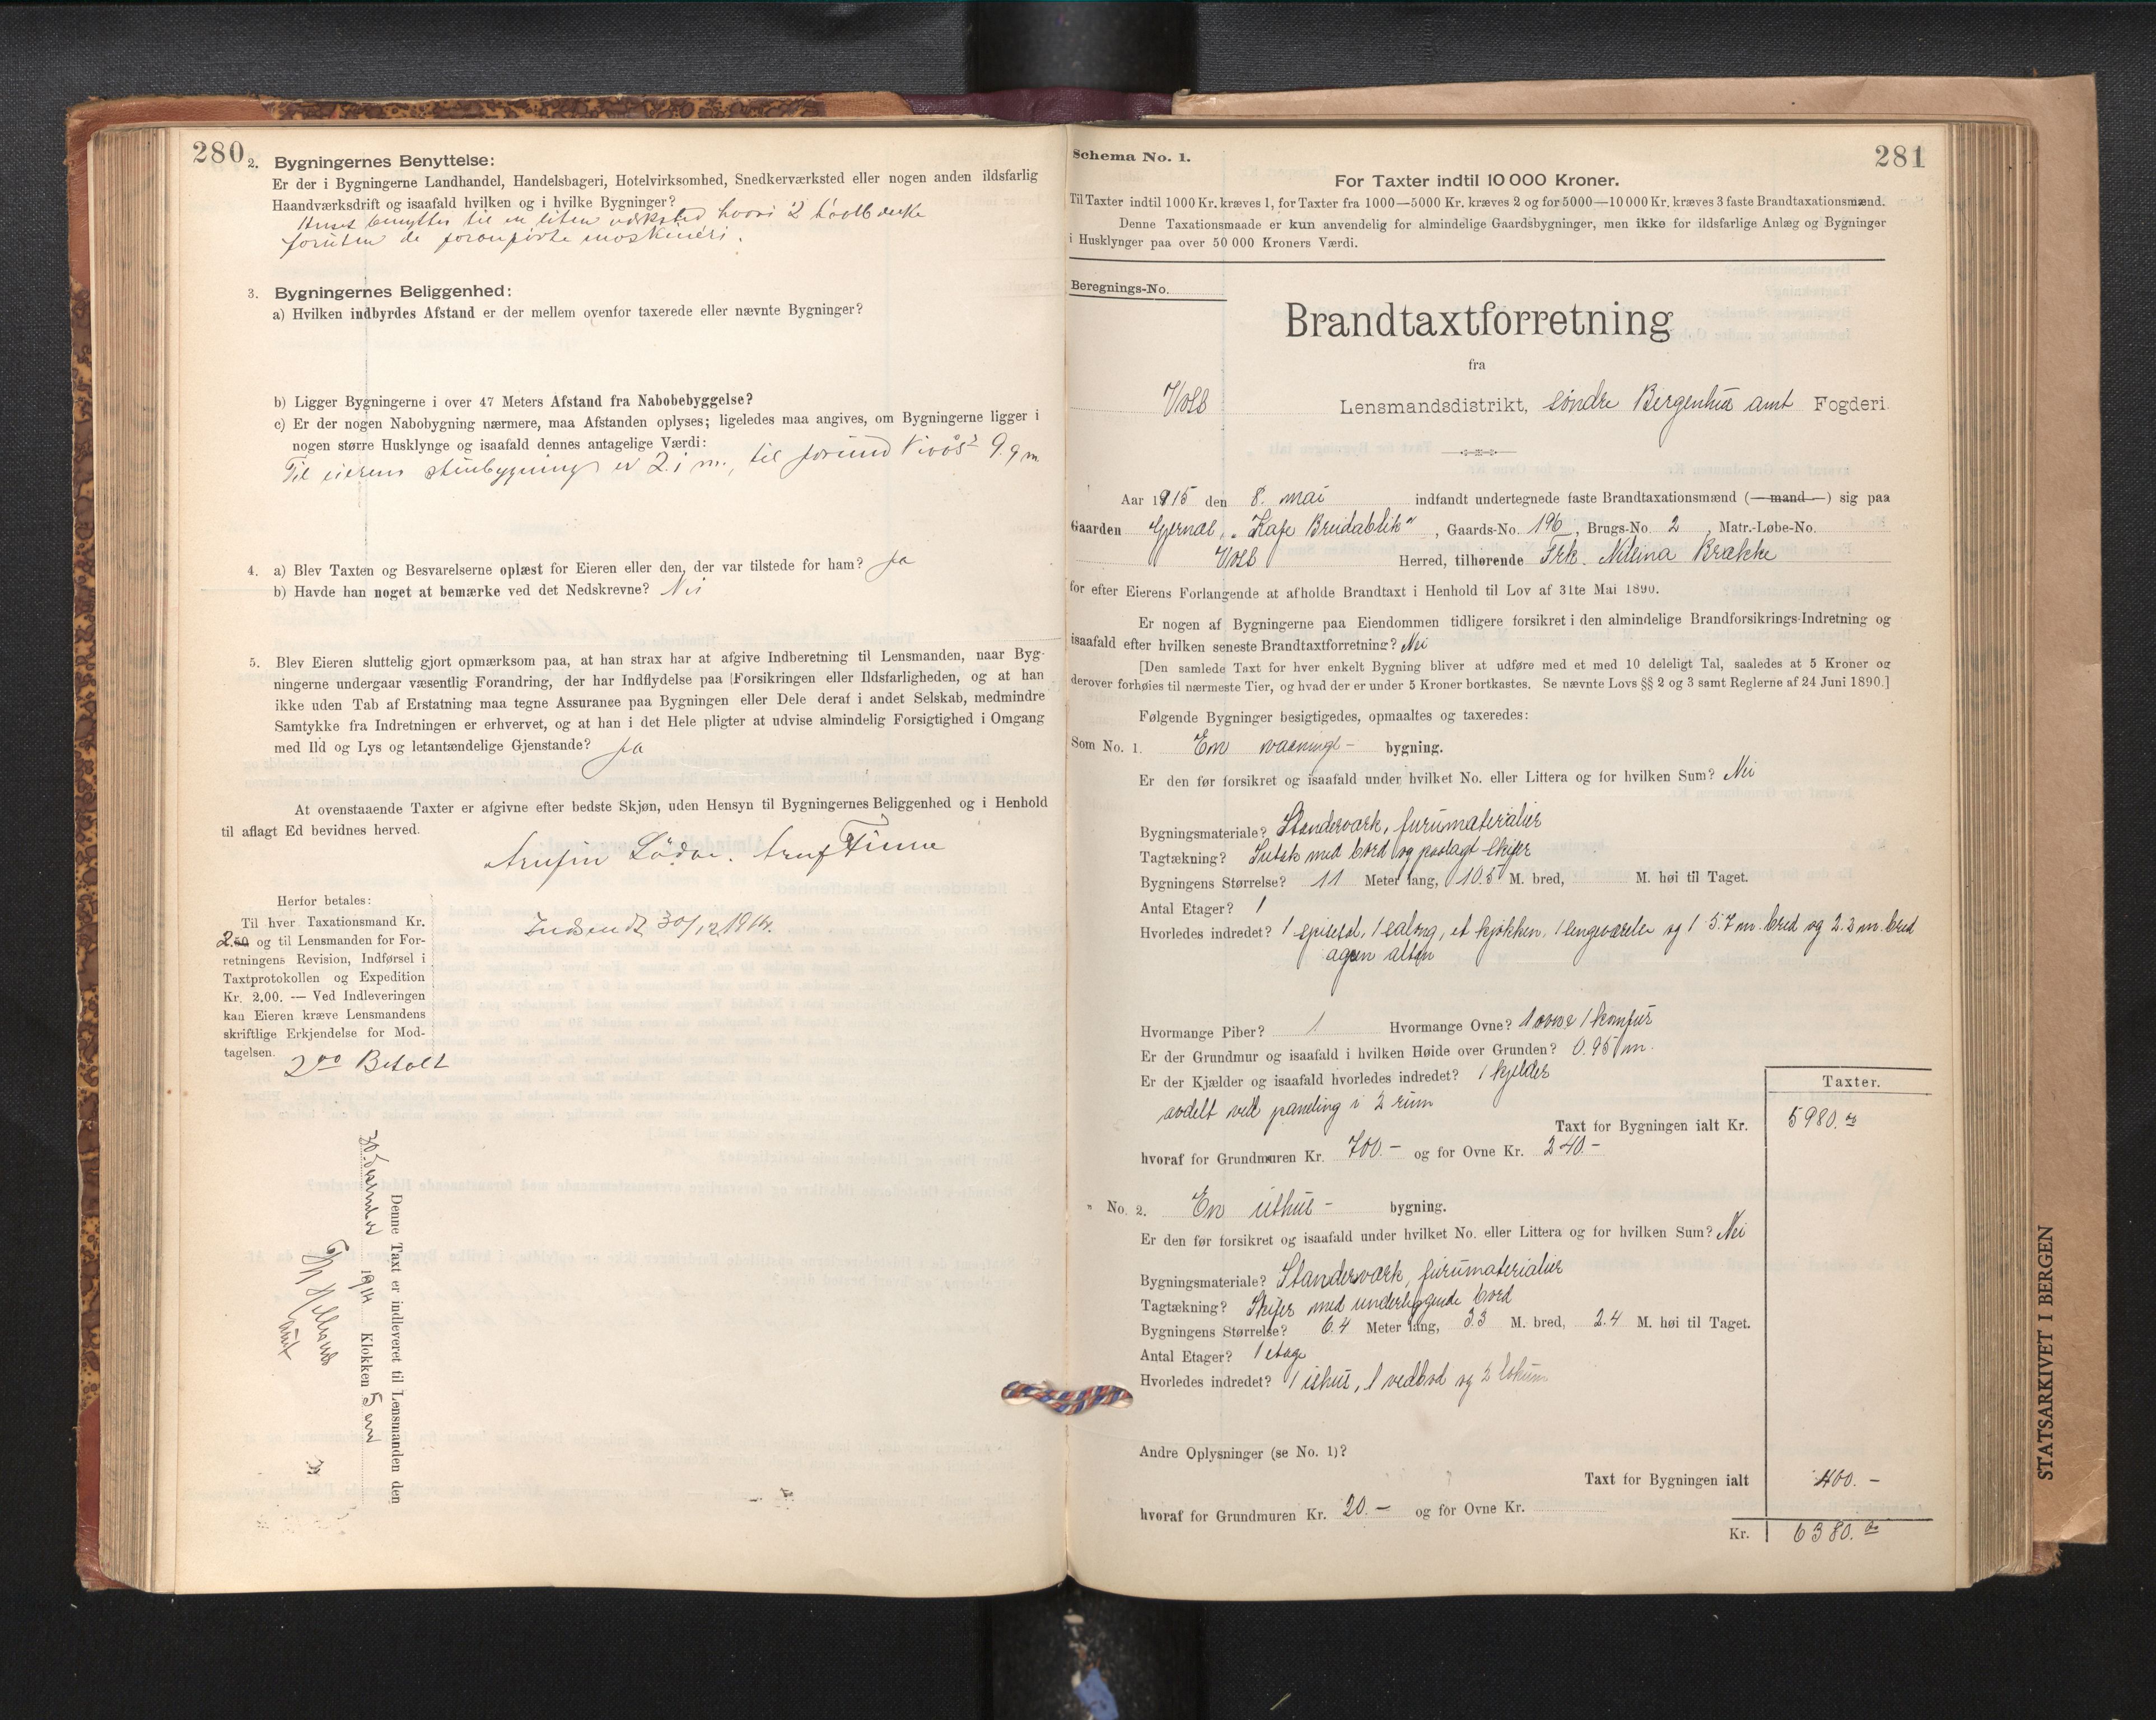 280
2. Bygningernes Benyttelse:
Er der i Bygningerne Landhandel, Handelsbageri, Hotelvirksomhed, Snedkerværksted eller nogen anden ildsfarlig
Haandværksdrift og isaafald hvilken og i hvilke Bygninger?
Huset benyttes til en liten verksted hvori 2
foruten de foranførte maskineri.
3. Bygningernes Beliggenhed:
a) Hvilken indbyrdes Afstand er der mellem ovenfor taxerede eller nævnte Bygninger?
b) Ligger Bygningerne i over 47 Meters Afstand fra Nabobebyggelse?
c) Er der nogen Nabobygning nærmere, maa Afstanden oplyses; ligeledes maa angives, om Bygningerne ligger i
nogen større Husklynge og isaafald dennes antagelige Værdi:
Til eierens stuebygning er 2.1 m., til 9.9 m
4. a) Blev Taxten og Besvarelserne oplæst for Eieren eller den, der var tilstede for ham? Ja
b) Havde han noget at bemærke ved det Nedskrevne? Nei
5. Blev Eieren sluttelig gjort opmærksom paa, at han strax har at afgive Indberetning til Lensmanden, naar Byg-
ningerne undergaar væsentlig Forandring, der har Indflydelse paa Forsikringen eller Ildsfarligheden, og at han
ikke uden Tab af Erstatning maa tegne Assurance paa Bygningen eller Dele deraf i andet Selskab, medmindre
Samtykke fra Indretningen er erhvervet, og at han i det Hele pligter at udvise almindelig Forsigtighed i Omgang
med Ild og Lys og letantændelige Gjenstande? Ja
At ovenstaaende Taxter er afgivne efter bedste Skjøn, uden Hensyn til Bygningernes Beliggenhed og i Henhold
til aflagt Ed bevidnes herved.
Finne
Herfor betales:
Til hver Taxationsmand Kr.
2.50 og til Lensmanden for For-
retningens Revision, Indførsel i
Taxtprotokollen og Expedition
Kr. 2.00. — Ved Indleveringen
kan Eieren kræve Lensmandens
skriftlige Erkjendelse for Mod-
tagelsen.
Indsendt 30/12 1914.
2.00 Betalt
Denne Taxt er indleveret til Lensmanden den
30. december 1914 Klokken 5 em
281
Schema No. 1.
For Taxter indtil 10 000 Kroner.
Til Taxter indtil 1000 Kr. kræves 1, for Taxter fra 1000—5000 Kr. kræves 2 og for 5000—10 000 Kr. kræves 3 faste Brandtaxationsmænd.
Denne Taxationsmaade er kun anvendelig for almindelige Gaardsbygninger, men ikke for ildsfarlige Anlæg og Bygninger
i Husklynger paa over 50 000 Kroners Værdi.
Beregnings-No.
Brandtaxtforretning
fra
Voss Lensmandsdistrikt, søndre Bergenhus amt Fogderi.
Aar 1915 den 8. mai indfandt undertegnede faste Brandtaxationsmænd (—mand—) sig paa
Gaarden Gjernæs, "Kafe Breidablik", Gaards-No. 196, Brugs-No. 2, Matr.-Løbe-No.
Voss Herred, tilhørende Frk. Nilsina Brække
for efter Eierens Forlangende at afholde Brandtaxt i Henhold til Lov af 31te Mai 1890.
Er nogen af Bygningerne paa Eiendommen tidligere forsikret i den almindelige Brandforsikrings-Indretning og
isaafald efter hvilken seneste Brandtaxtforretning? Nei
[Den samlede Taxt for hver enkelt Bygning bliver at udføre med et med 10 deleligt Tal, saaledes at 5 Kroner og
derover forhøies til nærmeste Tier, og hvad der er under 5 Kroner bortkastes. Se nævnte Lovs §§ 2 og 3 samt Reglerne af 24 Juni 1890.]
Følgende Bygninger besigtigedes, opmaaltes og taxeredes:
Som No. 1. En vaanings- bygning.
Er den før forsikret og isaafald under hvilket No. eller Littera og for hvilken Sum? Nei
Bygningsmateriale? Standerværk, furumaterialier
Tagtækning? Sutak med bord og paalagt skifer
Bygningens Størrelse? 11 Meter lang, 10.5 M. bred, M. høi til Taget.
Antal Etager? 1
Hvorledes indredet? 1 spisesal, 1 salong, et kjøkken, 1 sengeværelse og 1 5.7 m. bred og 2.3 m. bred
aapen altan
Hvormange Piber? 1 Hvormange Ovne? 1 ovne 1 komfur
Er der Grundmur og isaafald i hvilken Høide over Grunden? 0.95 m.
Er der Kjælder og isaafald hvorledes indredet? 1 kjelder
avdelt ved paneling i 2 rum
Taxter.
Taxt for Bygningen ialt Kr. 5980.00
hvoraf for Grundmuren Kr. 700.- og for Ovne Kr. 240.-
" No. 2. En uthus- bygning.
Er den før forsikret og isaafald under hvilket No. eller Littera og for hvilken Sum? Nei
Bygningsmateriale? Standerværk, furumaterialier
Tagtækning? Skifer med underliggende bord
Bygningens Størrelse? 6.4 Meter lang, 3.3 M. bred, 2.4 M. høi til Taget.
Antal Etager? 1 etage
Hvorledes indredet? 1 ishus, 1 vedbod og 2 lokum
Andre Oplysninger (se No. 1)?
Taxt for Bygningen ialt 400.-
hvoraf for Grundmuren Kr. 20.- og for Ovne Kr.
Kr. 6380.00
STATSARKIVET I BERGEN